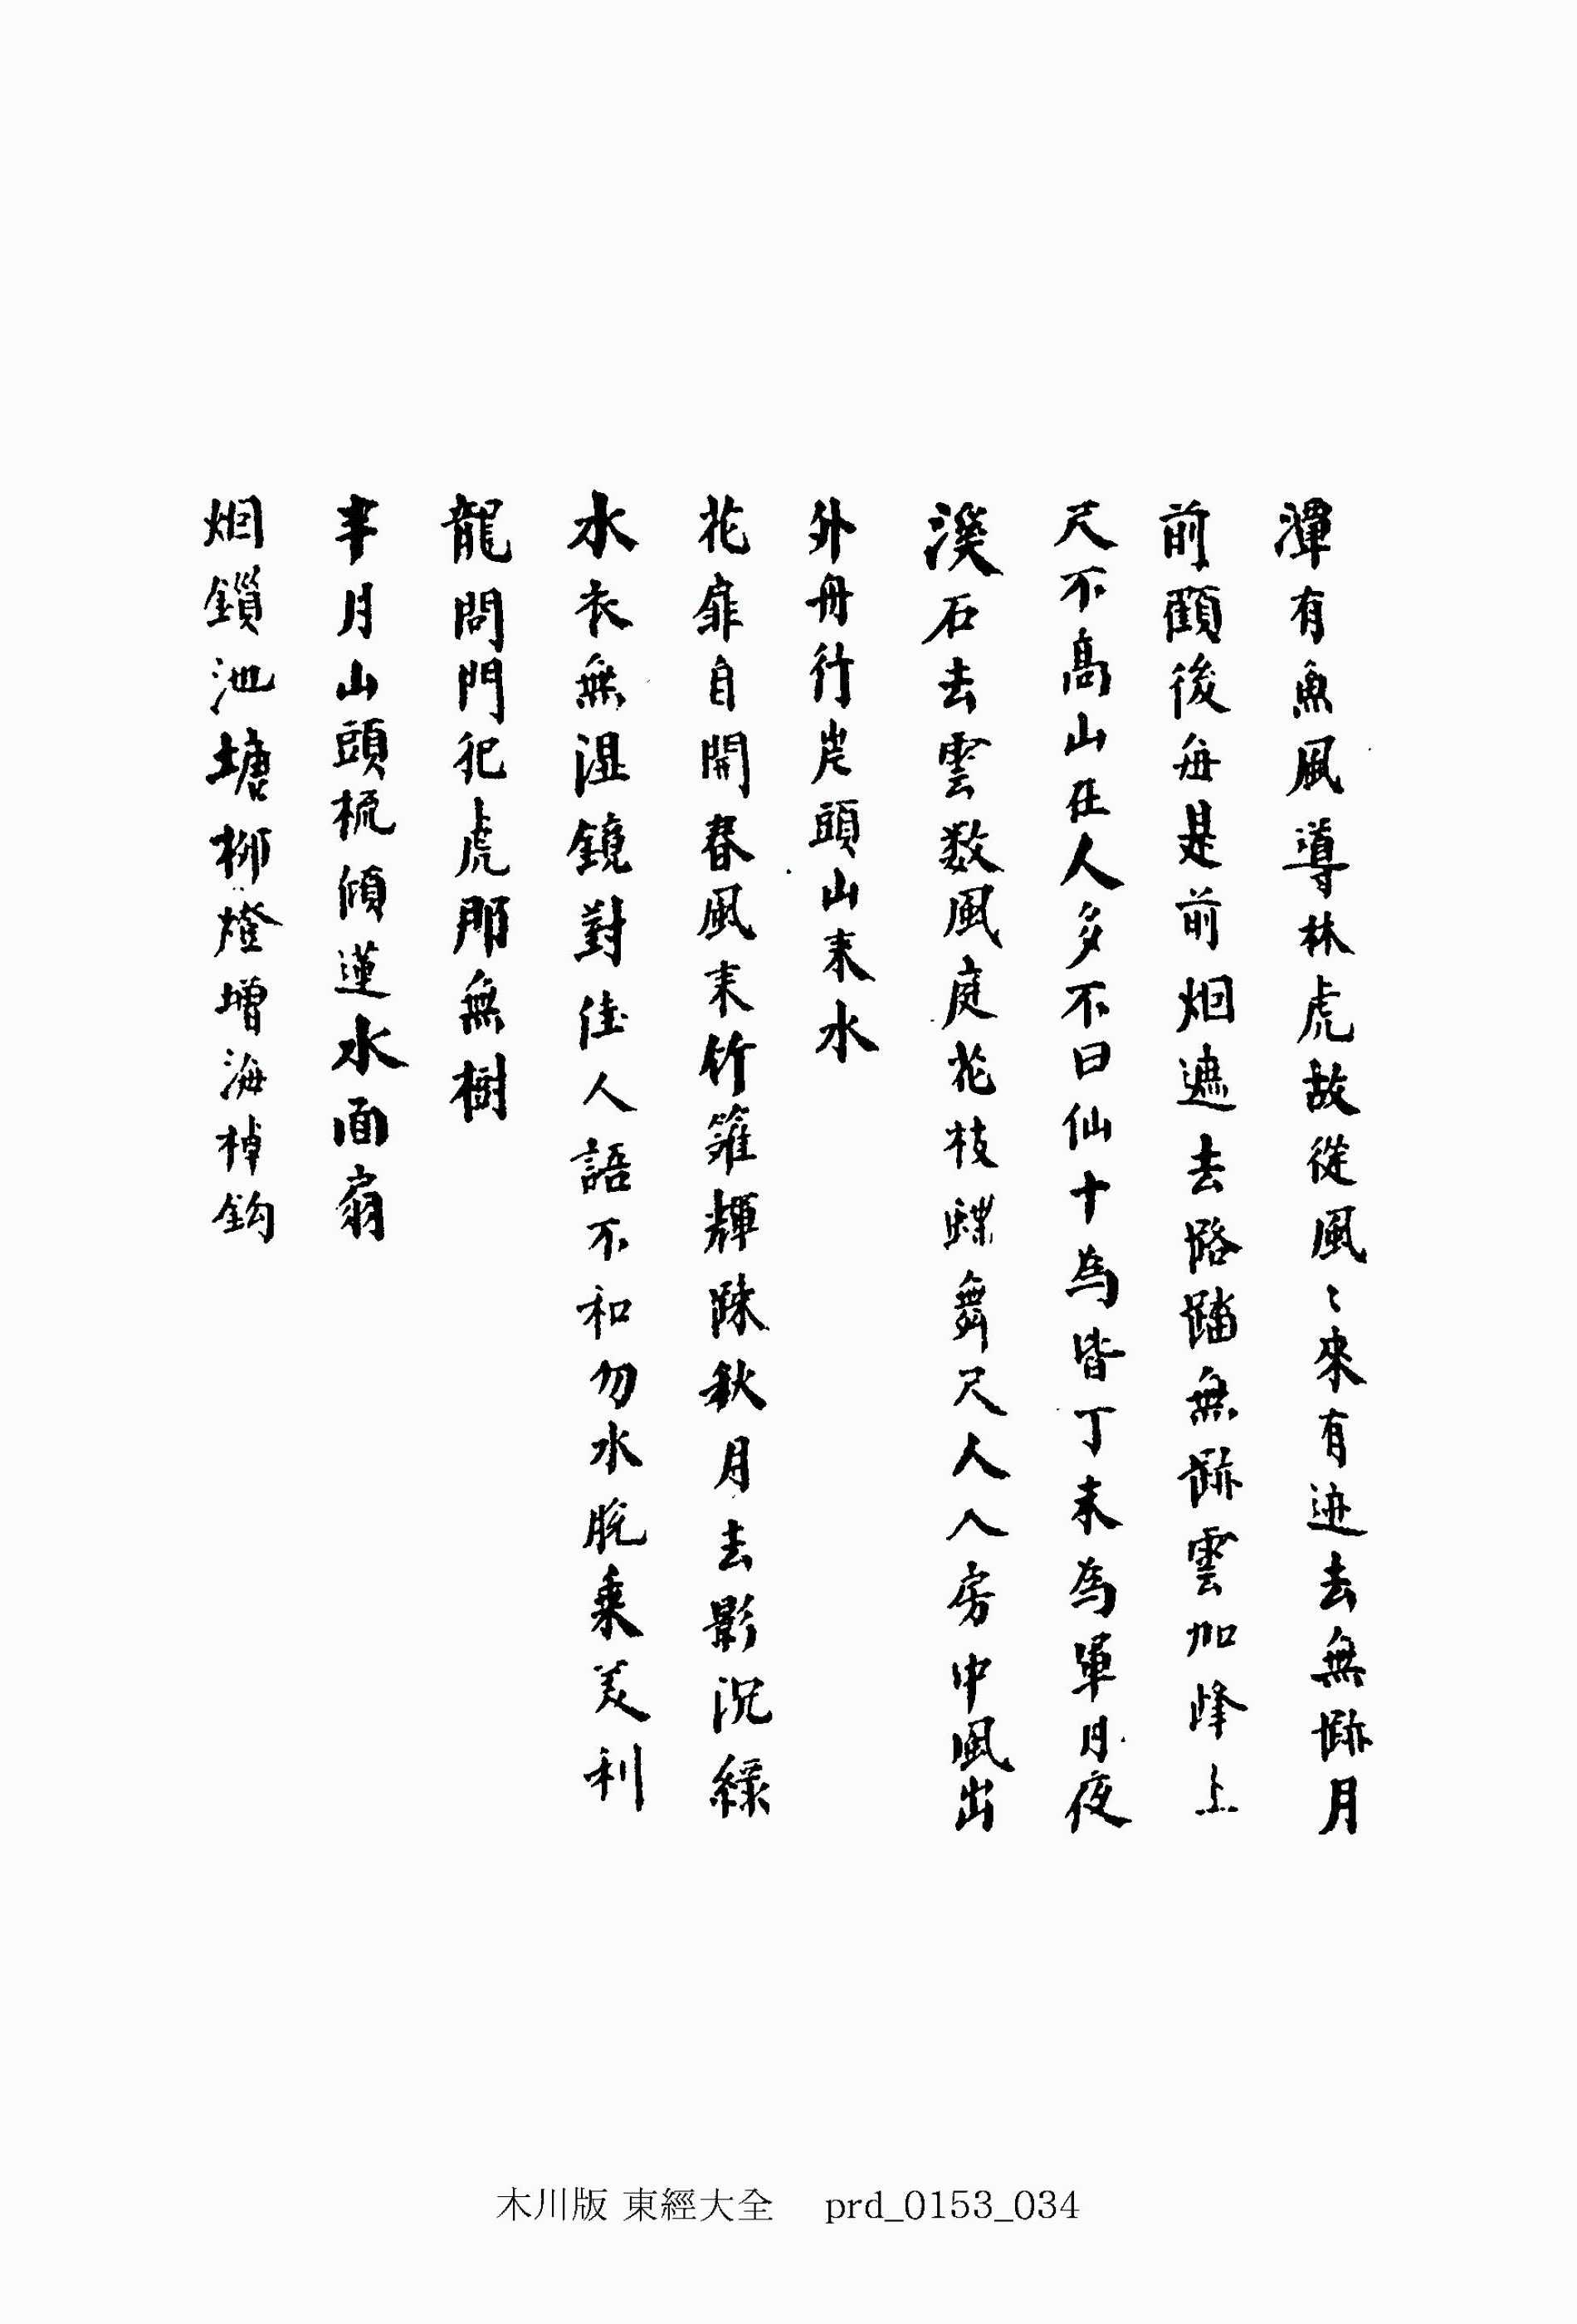 潭有魚風導林虎故從風〻來有迹去無跡月
前顧後每是前烟遮去路踏無跡雲加峰上
尺不高山在人多不曰仙十爲皆丁未爲軍月夜
溪石去雲数風庭花枝蝶舞尺人入房中風出
外舟行岸頭山来水
花扉自開春風来竹籬輝踈秋月去影沉綠
水衣無濕鏡對佳人語不和勿水脫乘美利
龍問門犯虎那無樹
半月山頭梳傾蓮水面扇
烟鎖池塘柳燈增海棹鈎
木川版 東經大全 prd_0153_034